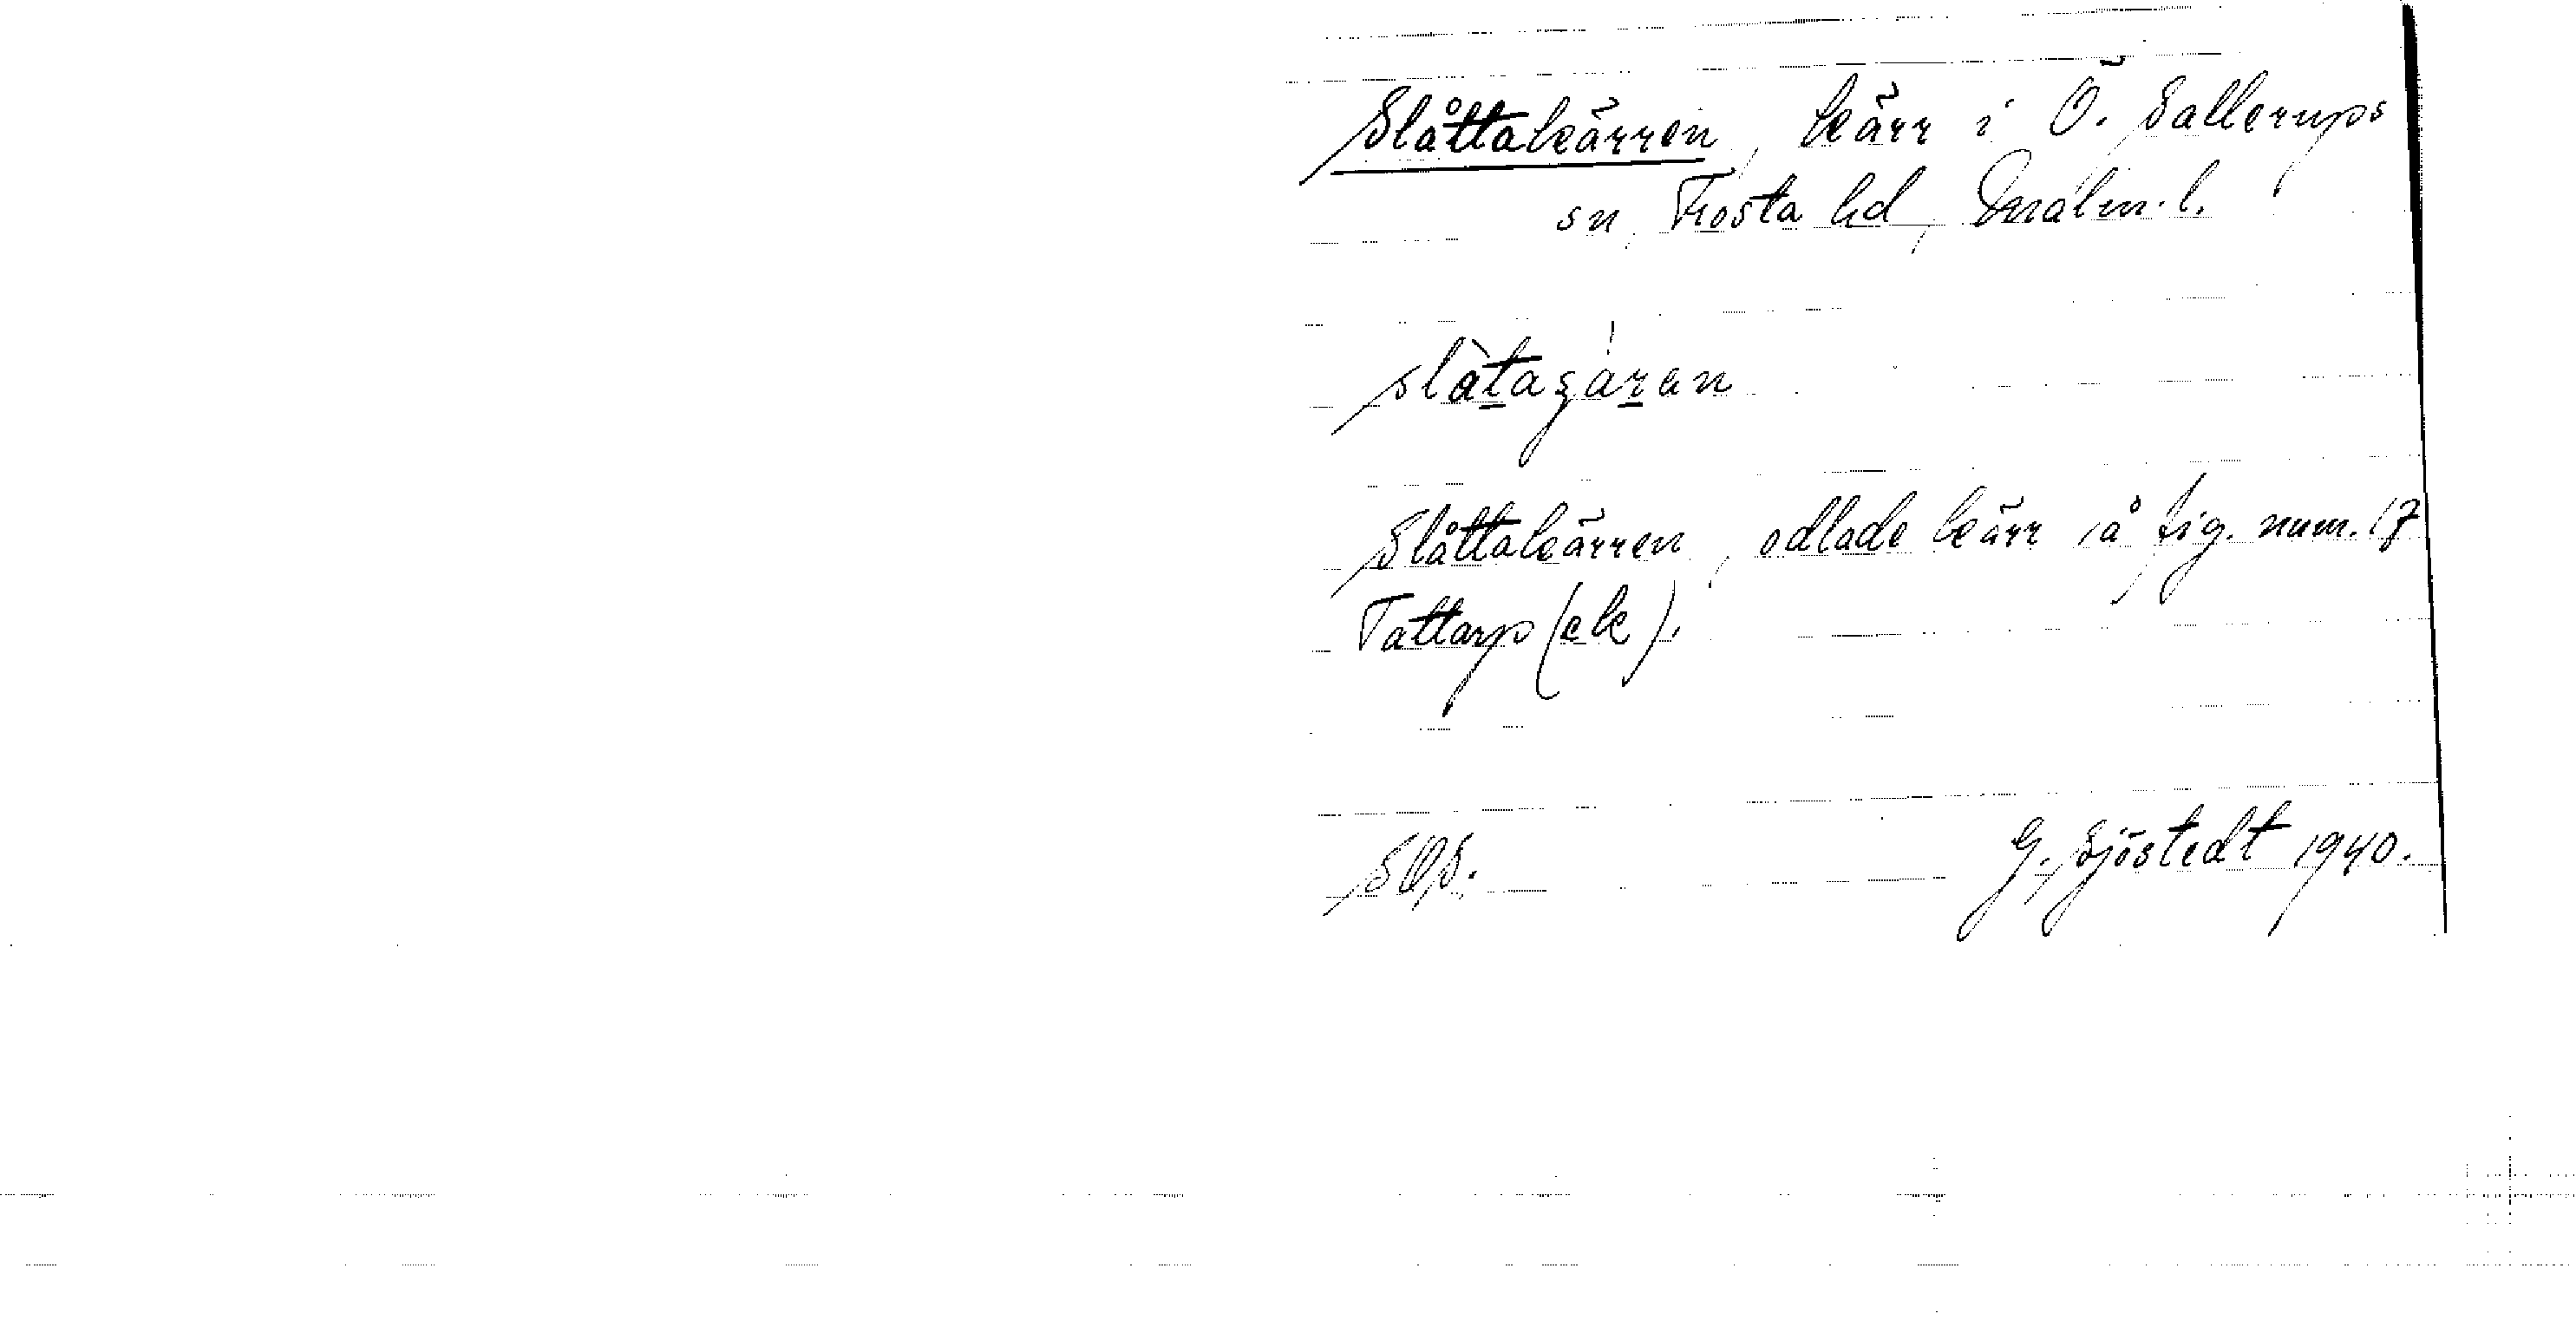 Slåttakärren, kärr i Ö. Sallerups
sn, Frosta hd, Malm. l.
Slåttakärren, odlade kärr på fig. num. 17
Tattarp (ek).
SOS. G. Sjöstedt 1940.